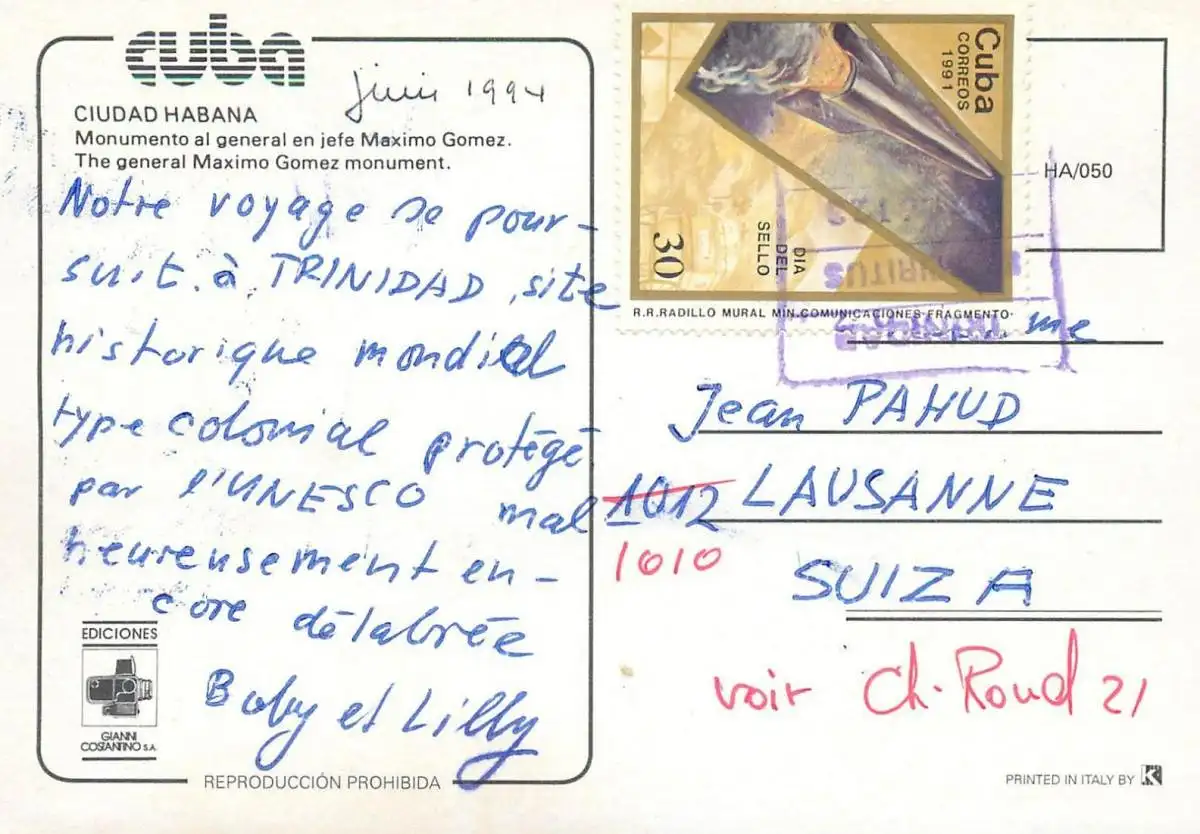 cuba
juin 1994
CIUDAD HABANA
Monumento al general en jefe Maximo Gomez.
The general Maximo Gomez monument.
Notre voyage se pour-
suit à TRINIDAD, site
historique mondial
type colonial protégé
par l'UNESCO mal
heureusement en-
core délabrée
Boby et Lilly
EDICIONES
GIANNI
COSTANTINO S.A.
REPRODUCCIÓN PROHIBIDA
Cuba
CORREOS
1991
DIA
DEL
SELLO
30
R.R.RADILLO MURAL MIN.COMUNICACIONES-FRAGMENTO-
HA/050
TRINIDAD
me
Jean PAHUD
1012 LAUSANNE
1010
SUIZA
voir Ch. Roud 21
PRINTED IN ITALY BY K